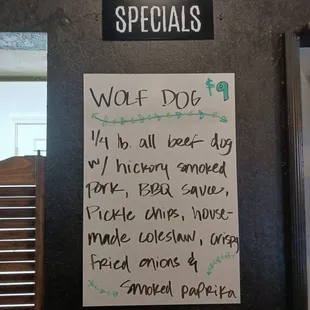 SPECIALS
WOLF DOG $9
1/4 lb. all beef dog
w/ hickory smoked
pork, BBQ sauce,
Pickle chips, house-
made coleslaw, crispy
fried onions &
smoked paprika